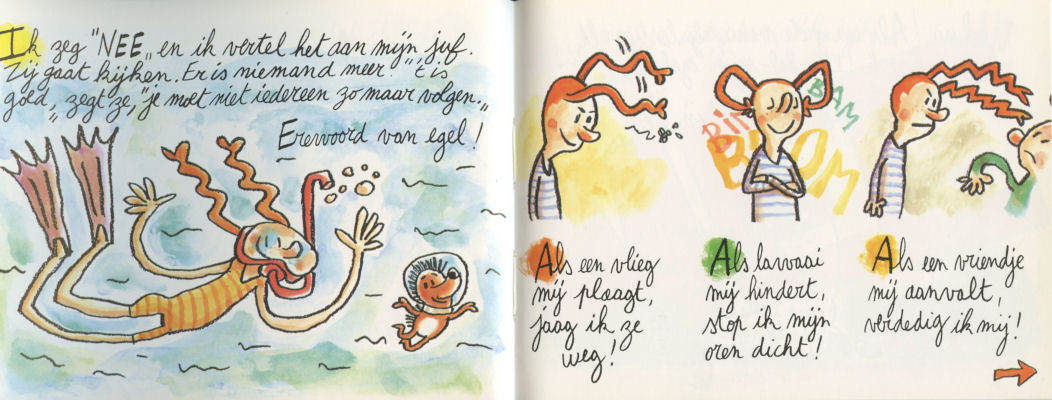 Ik zeg "NEE„ en ik vertel het aan mijn juf.
Zij gaat kijken. Er is niemand meer! "'t is
goed„, zegt ze, "je moet niet iedereen zo maar volgen.„
Erewoord van egel!
BIM
BAM
BOOM
Als een vlieg
mij plaagt,
jaag ik ze
weg!
Als lawaai
mij hindert,
stop ik mijn
oren dicht!
Als een vriendje
mij aanvalt,
verdedig ik mij!